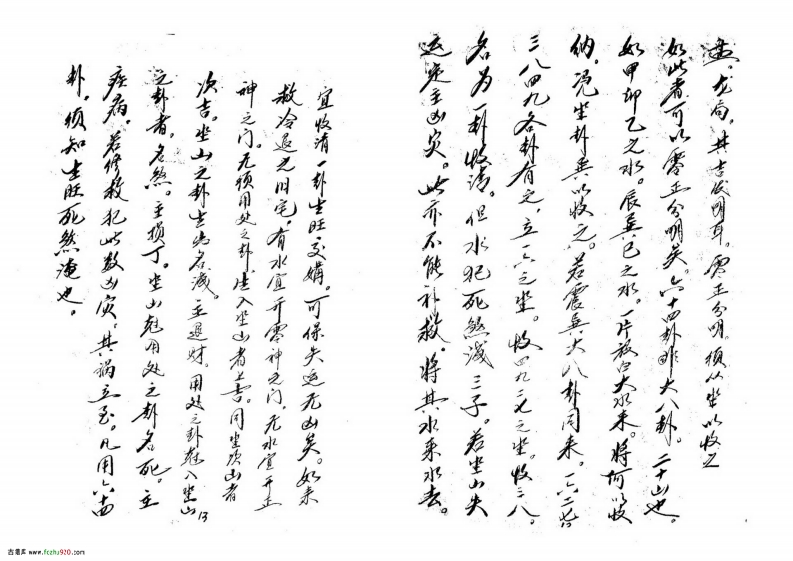 盘。龙局。其吉凶明耳。零正分明。须从坐以收之
如此者可以零正分明矣。六十四卦非大八卦。二十山也。
如甲卯乙之水。辰巽巳之水。一片放白大水来。将何以收
纳。凭坐卦巽以收之。若震巽大八卦同来。一六二七
三八四九各卦有定，立一六之坐。收四九二七之坐。收三八。
名为一卦收清。但水犯死煞减三子。若坐山失
运定主凶灾。此亦不能补救。将其水来水去。
宜收清一卦生旺交媾。可保失运无凶矣。如来
救冷退之旧宅，有水宜开零神之门。无水宜开正
神之门。无须用处之卦生入坐山者上吉。同坐次山者
次吉。坐山之卦生出名减。主退财。用处之卦克入坐山
之卦者。名煞。主损丁。坐山克用处之卦名死。主
疾病。若修救犯此数凶灾。其祸立至。凡用六十四
卦。须知生旺死煞淹也。
13
古墓库 www.fczhu920.com